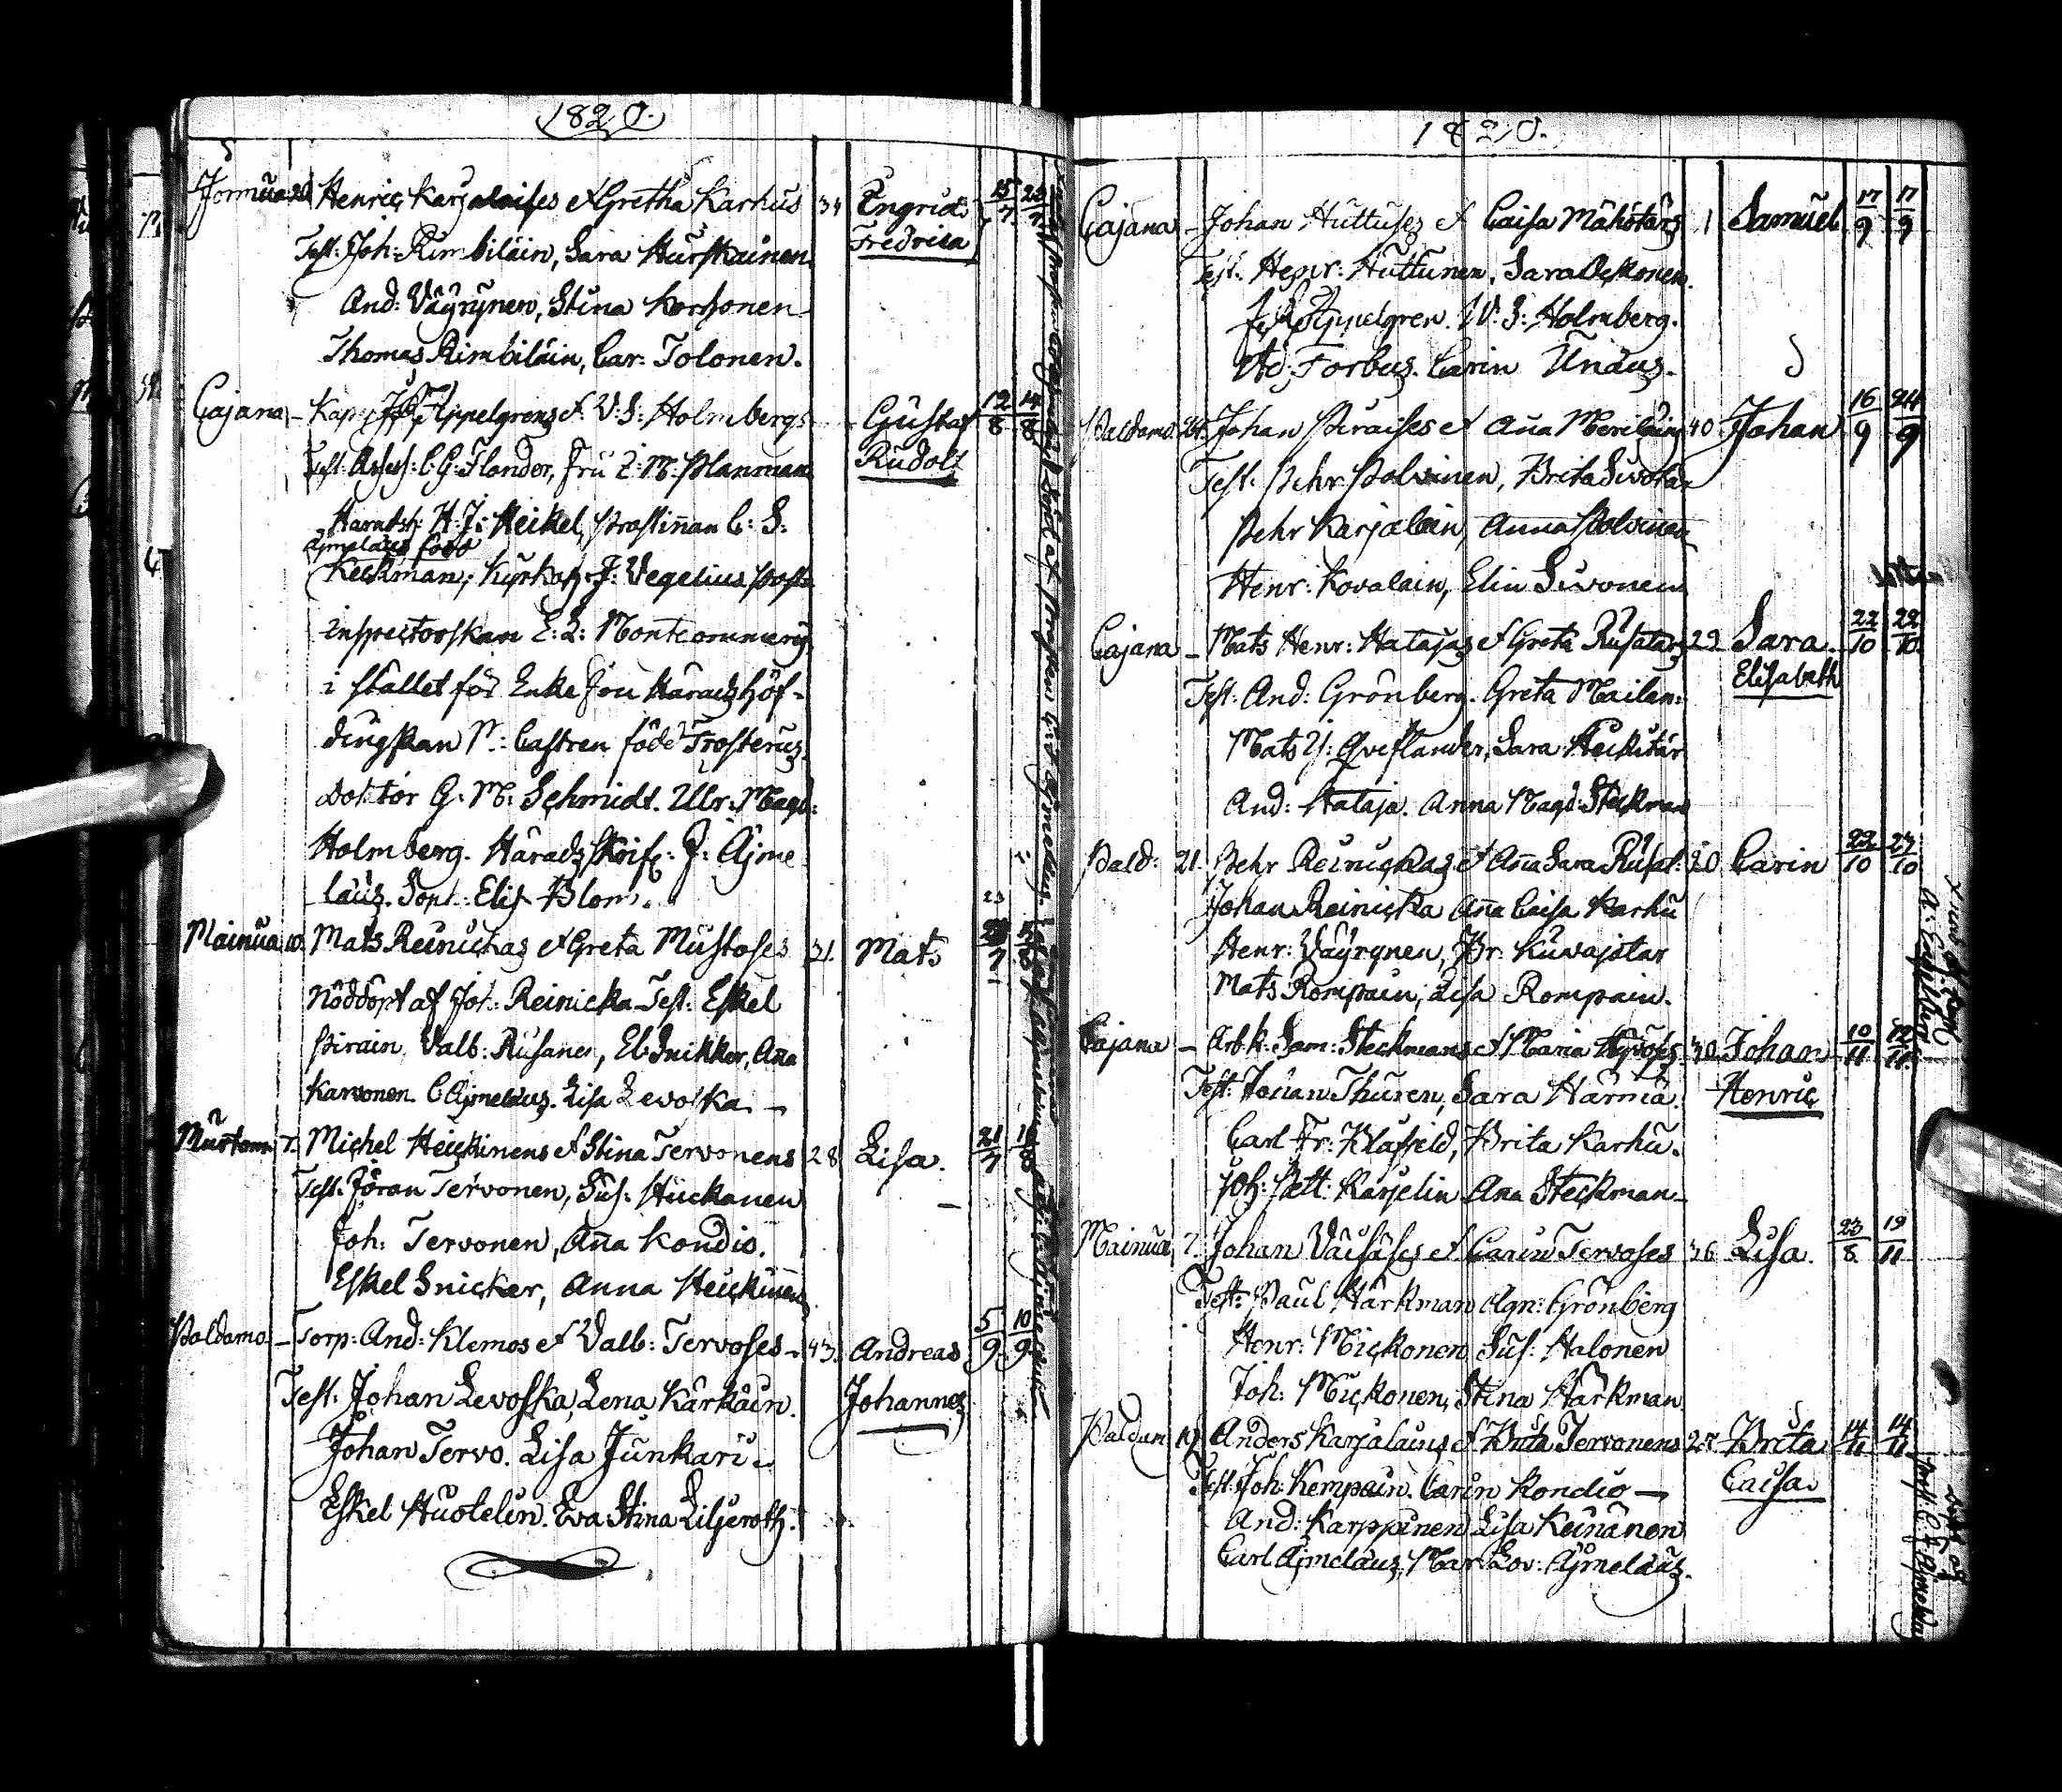 1820.
Jormua 20 Henric Karjalaises & Gretha Karhus 34 Engrid 15/7 22/7
Test: Joh: Rimbiläin, Sara Hurskainen Fredrica
And: Väyrynen, Stina Korhonen
Thomas Rimbiläin, Car: Tolonen.
Cajana – Kap: Appelgrens & V: S: Holmbergs Gustaf 12/8 14/8
Test: Assess: C. G: Flander, Fru Z: M: Planman Rudolf
Haradsh: H: J: Heikel, Prostinnan C: S:
Ajmelaus född
Keckman, Kyrkoh: J: Vegelius Post
inspectorskan E: L: Montcommery
i stället för Enke Fru Häradshöf-
dingskan N: Castren född Frosterus.
Doktor G: M: Schmidt. Ulr: Magd:
Holmberg. Häradsskrif: J: Ajme
läus. Sopt: Elis Blom.
23
Mainua 10. Mats Reinickas & Greta Mustoses 31. Mats 7 8
nöddöpt af Joh: Reinicka Test: Eskel
Pirain, Valb: Rusanen, El: Snikker, Aña
Karvonen. C Ajmeläus. Lisa Levoska –
Mustom 7. Michel Heickinens & Stina Tervonens 28 Lisa. 21/7
Test: Jöran Tervonen, Sus: Huckanen
Joh: Tervonen, Aña Kondio.
Eskel Snicker, Anna Heickinen
Paldamo – Torp: And: Klemos & Valb: Tervoses – 43. Andreas 5/9 10/9
Test: Johan Levoska, Lena Kärkäin. Johannes
Johan Tervo. Lisa Junkari
Eskel Huotelin. Eva Stina Liljeroth.
1820.
Cajana – Johan Huttuses & Caisa Mähötärs 1 Samuel 17/9 17/9
Test: Henr: Huttunen, Sara Ockonen.
Appelgren. W: S: Holmberg.
Ad: Forbus. Carin Unäus.
Paldamo 24. Johan Piraises & Aña Meriläins 40 Johan 16/9 24/9
Test: Pehr Polvinen, Brita Sivotar
Pehr Karjalain, Anna Polvinen
Henr: Kovalain, Elin Sivonen
Cajana – Mats Henr: Hatajas & Greta Rusatars 29 Sara 22/10 22/10
Test: And: Grönberg. Greta Mailan: Elisabeth
Mats J: Qvislander, Sara Heickitär
And: Hataja. Anna Magd: Steckman
Pald: 21. Pehr Reinickas & Aña Sara Rusat: 20 Carin 22/10 23/10
Johan Reinicka Aña Caisa Karhu
Henr: Väyrynen, Br: Kuvajatar
Mats Rompain, Lisa Rompain.
Cajana – Arb. k. Sam: Steckmans & Maria 30 Johan 10/11 12/11
Test: Johan Thuren, Sara Härmä. Henric
Carl Fr: Blåfjeld, Brita Karhu.
Joh: Pett: Karjelin Ana Steckman –
Mainua 7. Johan Väisäses & Carin Tervoses 36 Lisa. 23/8 19/11
Test: Paul Härkman Agn: Grönberg
Henr: Mickonen Sus: Halonen
Joh: Mickonen, Stina Härkman
Paldam 19 Anders Karjalains & Brita Tervonens 27. Brita 14/11 14/11
Test: Joh: Kempain. Carin Kondio – Caisa
And: Karppinen Lisa Keinänen
Carl Ajmeläus, Mar: Lov: Ajmeläus.